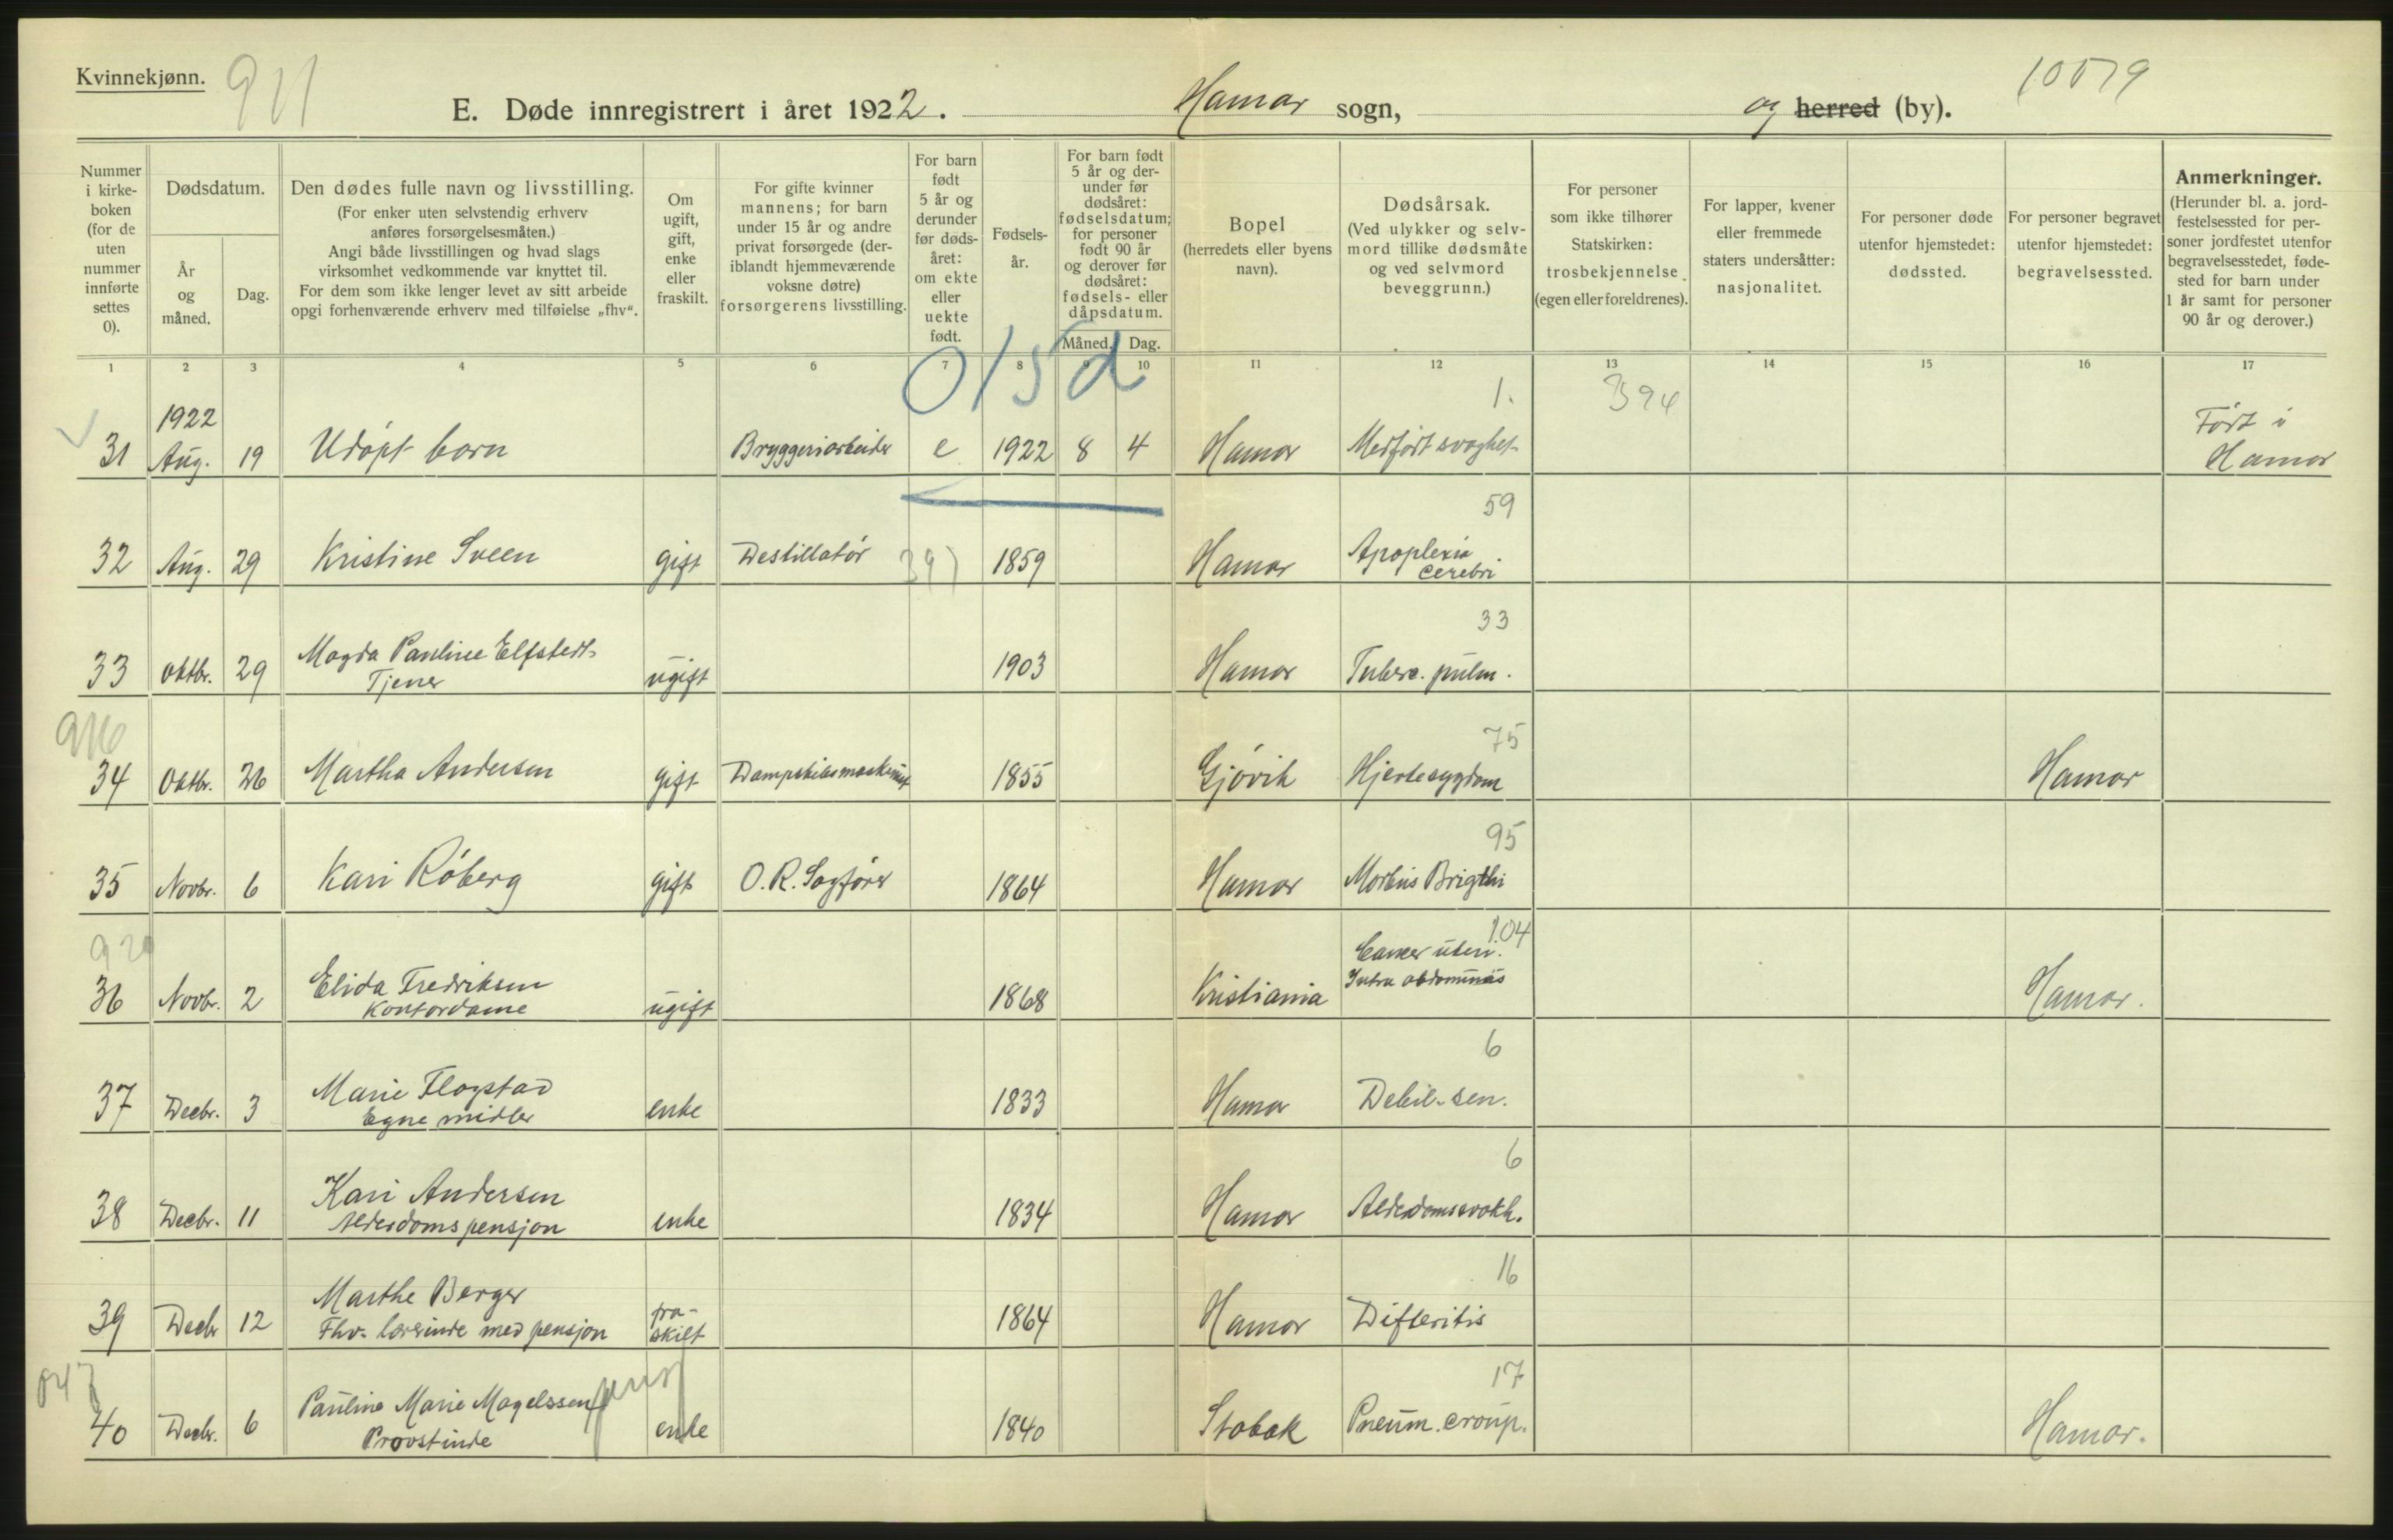 Kvinnekjønn.
911
10579
E. Døde innregistrert i året 1922. Hamar sogn, og herred (by).
Nummer i kirke-boken (for de uten nummer innførte settes 0).
Dødsdatum.
År og måned.
Dag.
Den dødes fulle navn og livsstilling.
(For enker uten selvstendig erhverv anføres forsørgelsesmåten.)
Angi både livsstillingen og hvad slags virksomhet vedkommende var knyttet til.
For dem som ikke lenger levet av sitt arbeide opgi forhenværende erhverv med tilføielse „fhv“.
Om ugift, gift, enke eller fraskilt.
For gifte kvinner mannens; for barn under 15 år og andre privat forsørgede (der-iblandt hjemmeværende voksne døtre) forsørgerens livsstilling.
For barn født 5 år og derunder før døds-året: om ekte eller uekte født.
Fødsels-år.
For barn født 5 år og der-under før dødsåret: fødselsdatum; for personer født 90 år og derover før dødsåret: fødsels- eller dåpsdatum.
Måned. Dag.
Bopel (herredets eller byens navn).
Dødsårsak.
(Ved ulykker og selv-mord tillike dødsmåte og ved selvmord beveggrunn.)
For personer som ikke tilhører Statskirken: trosbekjennelse (egen eller foreldrenes).
For lapper, kvener eller fremmede staters undersåtter: nasjonalitet.
For personer døde utenfor hjemstedet: dødssted.
For personer begravet utenfor hjemstedet: begravelsessted.
Anmerkninger.
(Herunder bl. a. jord-festelsessted for per-soner jordfestet utenfor begravelsesstedet, føde-sted for barn under 1 år samt for personer 90 år og derover.)
1 2 3 4 5 6 7 8 9 10 11 12 13 14 15 16 17
015d
1. 394
31 1922 Aug. 19 Udøpt barn Bryggeriarbeider e 1922 8 4 Hamar Medfødt svaghet Født i Hamar
59
32 Aug. 29 Kristine Sveen gift Destillatør 1859 Hamar Apoplexia cerebri
33
33 Oktbr. 29 Magda Pauline Elfstedt Tjener ugift 1903 Hamar Tuberc. pulm.
916 75
34 Oktbr. 26 Martha Andersen gift Dampskibsmaskinist 1855 Gjøvik Hjertesygdom Hamar
95
35 Novbr. 6 Kari Røberg gift O.R. Sagfører 1864 Hamar Morbus Brigthi
920 104
36 Novbr. 2 Elida Fredriksen Kontordame ugift 1868 Kristiania Cancer uteri. Intra abdominäs Hamar.
6
37 Decbr. 3 Marie Flagstad Egne midler enke 1833 Hamar Debil. sen.
6
38 Decbr. 11 Kari Andersen Alderdomspensjon enke 1834 Hamar Alderdomssvakh.
16
39 Decbr 12 Marthe Berger Fhv. lærerinde med pensjon fra-skilt 1864 Hamar Difteritis
17
40 Decbr. 6 Pauline Marie Magelssen Provstinde pens enke 1840 Stabæk Pneum. croup. Hamar.